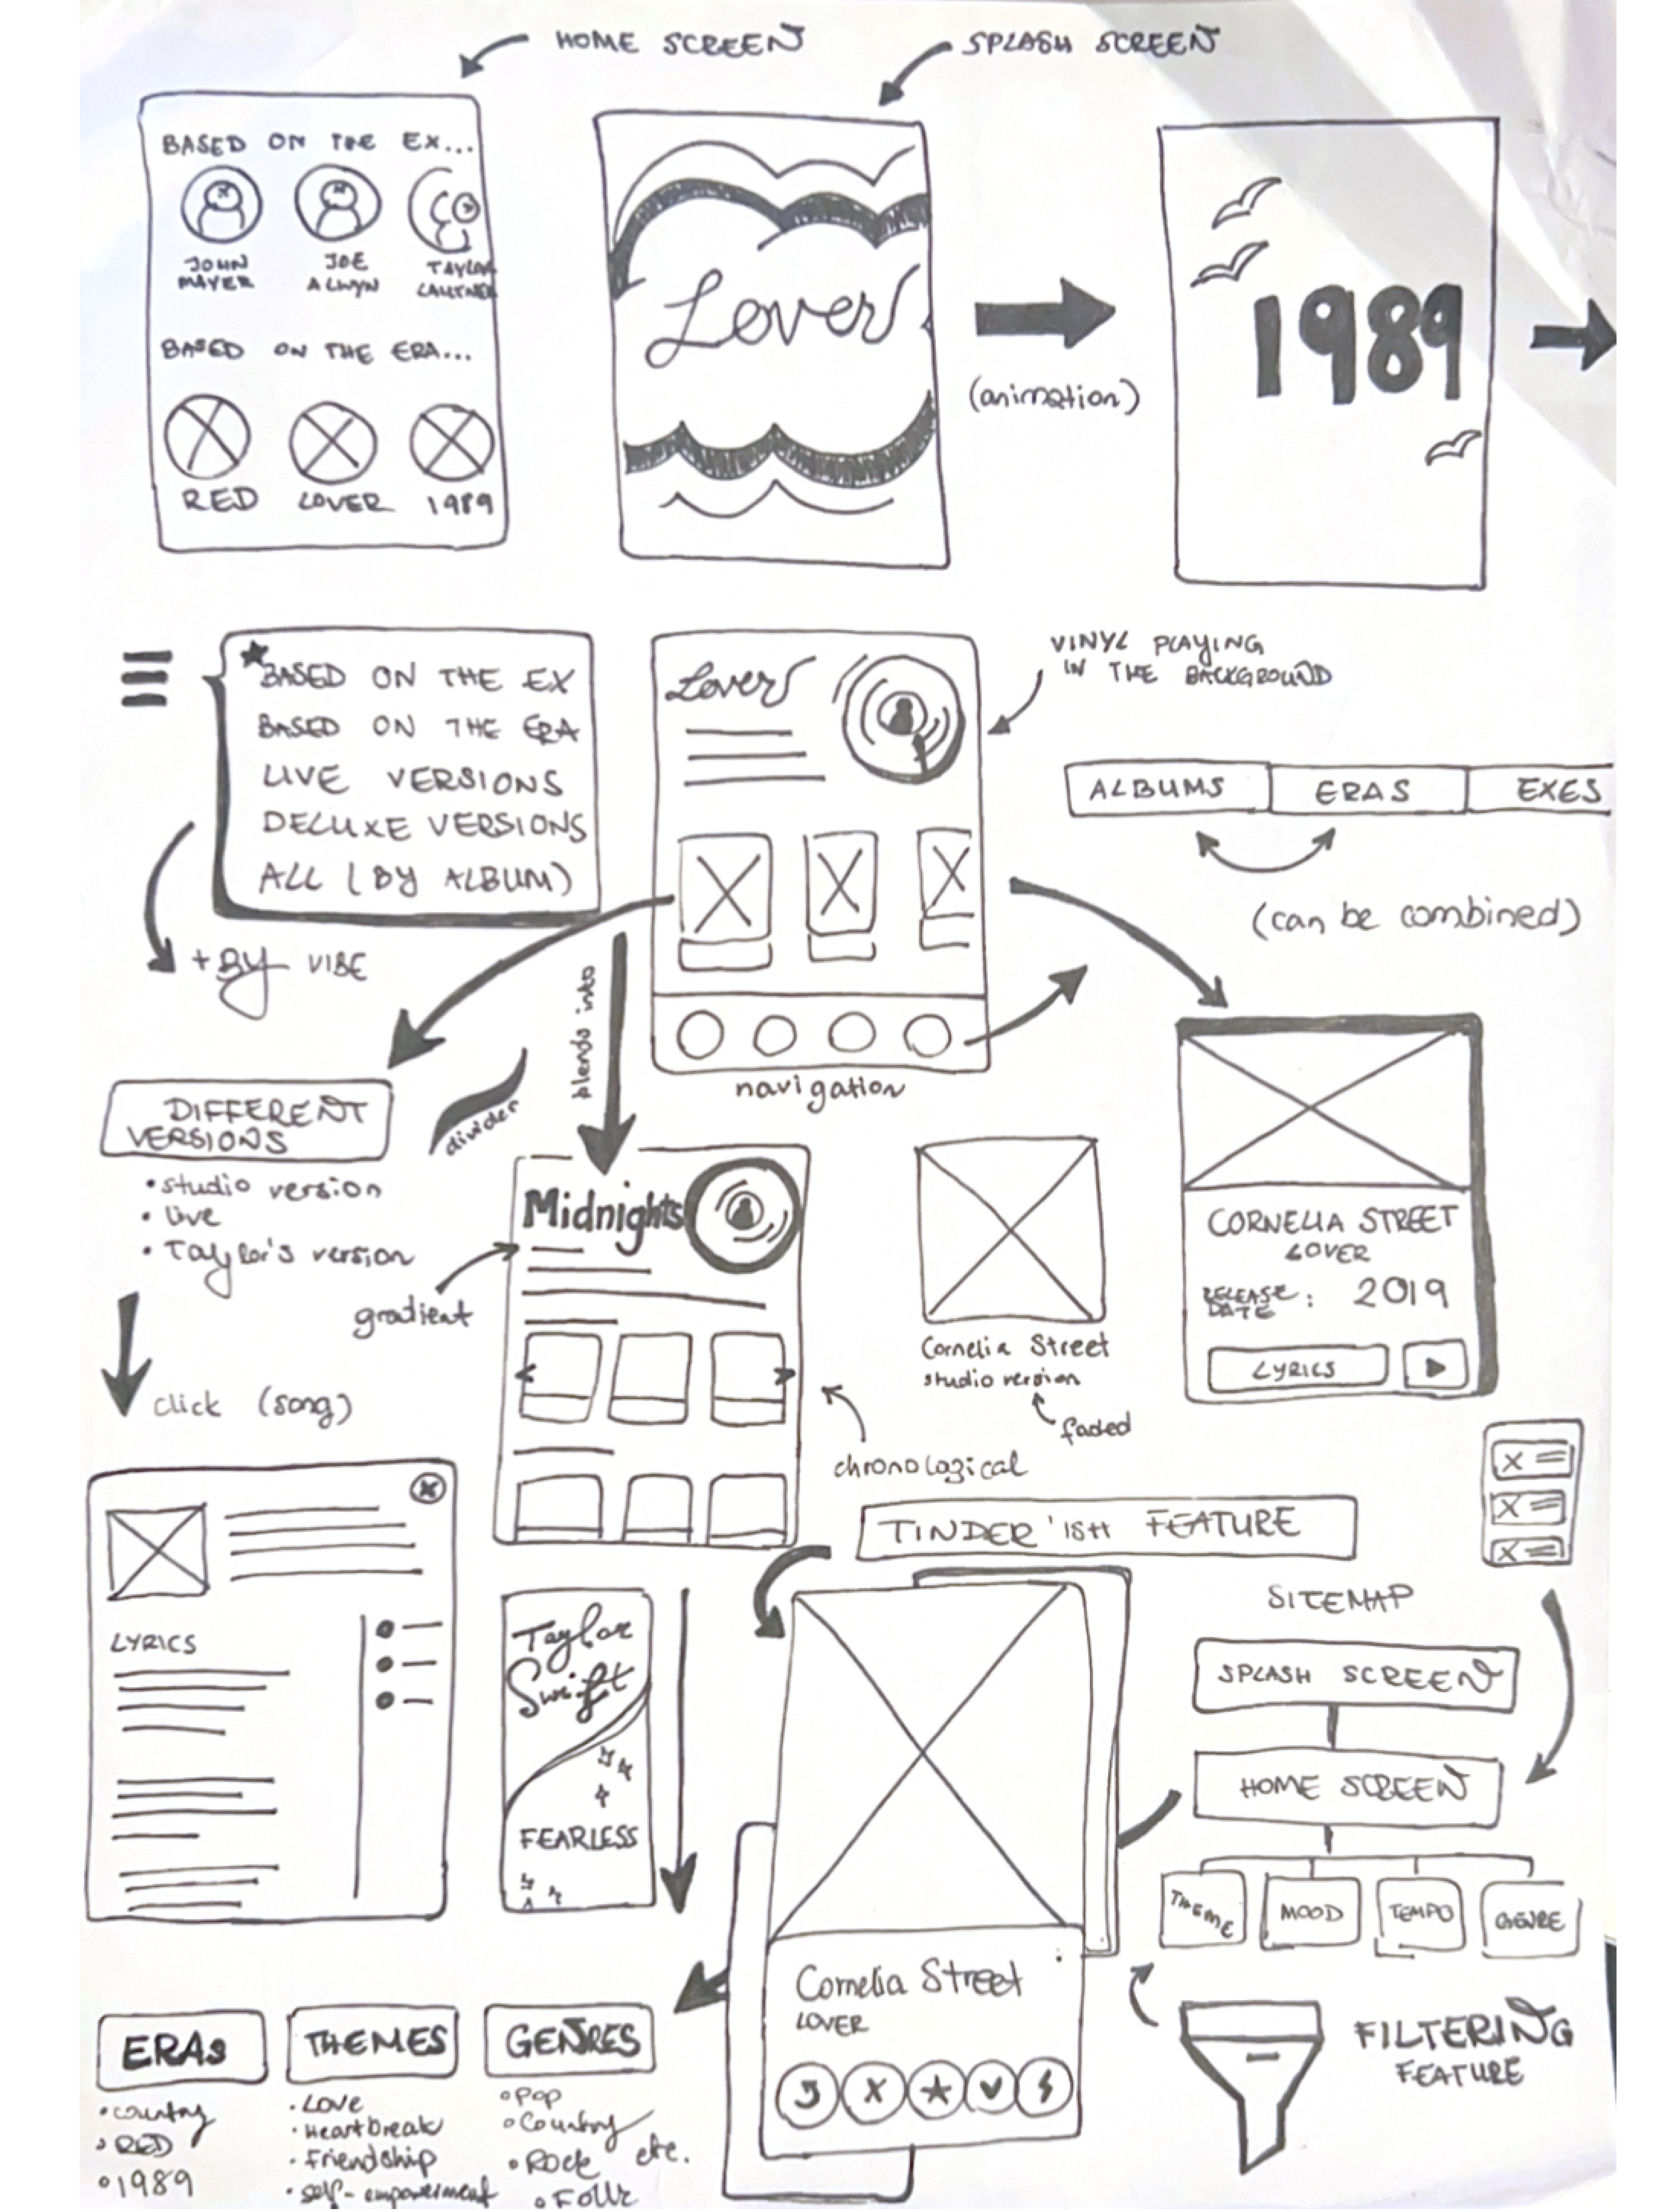 HOME SCREEN
SPLASH SCREEN
BASED ON THE EX...
JOHN MAYER
JOE ALWYN
TAYLOR LAUTNER
BASED ON THE ERA...
RED
LOVER
1989
Lover
(animation)
1989
BASED ON THE EX
BASED ON THE ERA
LIVE VERSIONS
DELUXE VERSIONS
ALL (BY ALBUM)
+ BY VIBE
Lover
VINYL PLAYING
IN THE BACKGROUND
ALBUMS
ERAS
EXES
(can be combined)
navigation
blends into
divider
DIFFERENT
VERSIONS
• studio version
• live
• Taylor's version
click (song)
Midnights
gradient
chronological
Cornelia Street
studio version
faded
CORNELIA STREET
LOVER
RELEASE DATE: 2019
LYRICS
LYRICS
Taylor
Swift
FEARLESS
TINDER'ISH FEATURE
Cornelia Street
LOVER
SITEMAP
SPLASH SCREEN
HOME SCREEN
THEME
MOOD
TEMPO
GENRE
FILTERING
FEATURE
ERAS
• country
• RED
• 1989
THEMES
• Love
• Heartbreak
• Friendship
• self-empowerment
GENRES
• Pop
• Country
• Rock
etc.